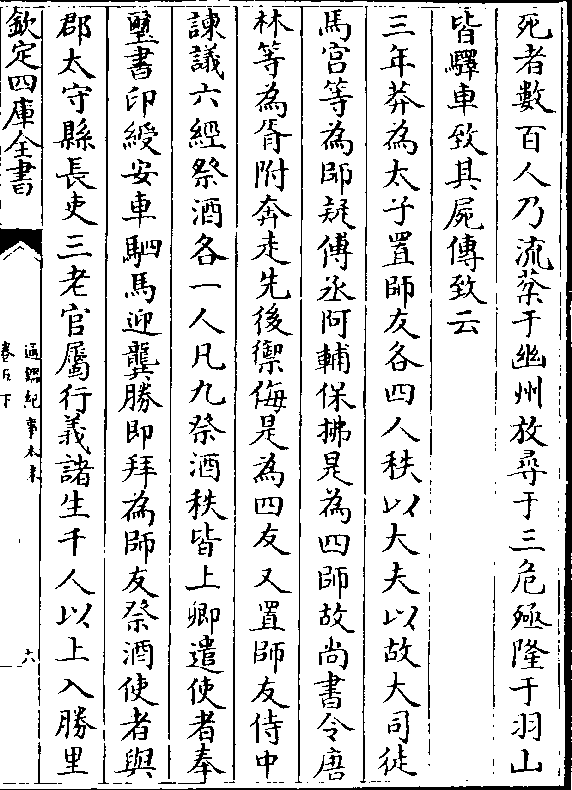 死者數百人乃流棻于幽州放尋于三危殛隆于羽山
皆驛車致其屍傳致云
三年莽為太子置師友各四人秩以大夫以故大司徒
馬宫等為師疑傅丞阿輔保拂是為四師故尚書令唐
林等為胥附奔走先後禦侮是為四友又置師友侍中
諫議六經祭酒各一人凡九祭酒秩皆上卿遣使者奉
璽書印綬安車駟馬迎龔勝即拜為師友祭酒使者與
郡太守縣長吏三老官屬行義諸生千人以上入勝里
欽定四庫全書
通鑑紀事本末
卷五下
六